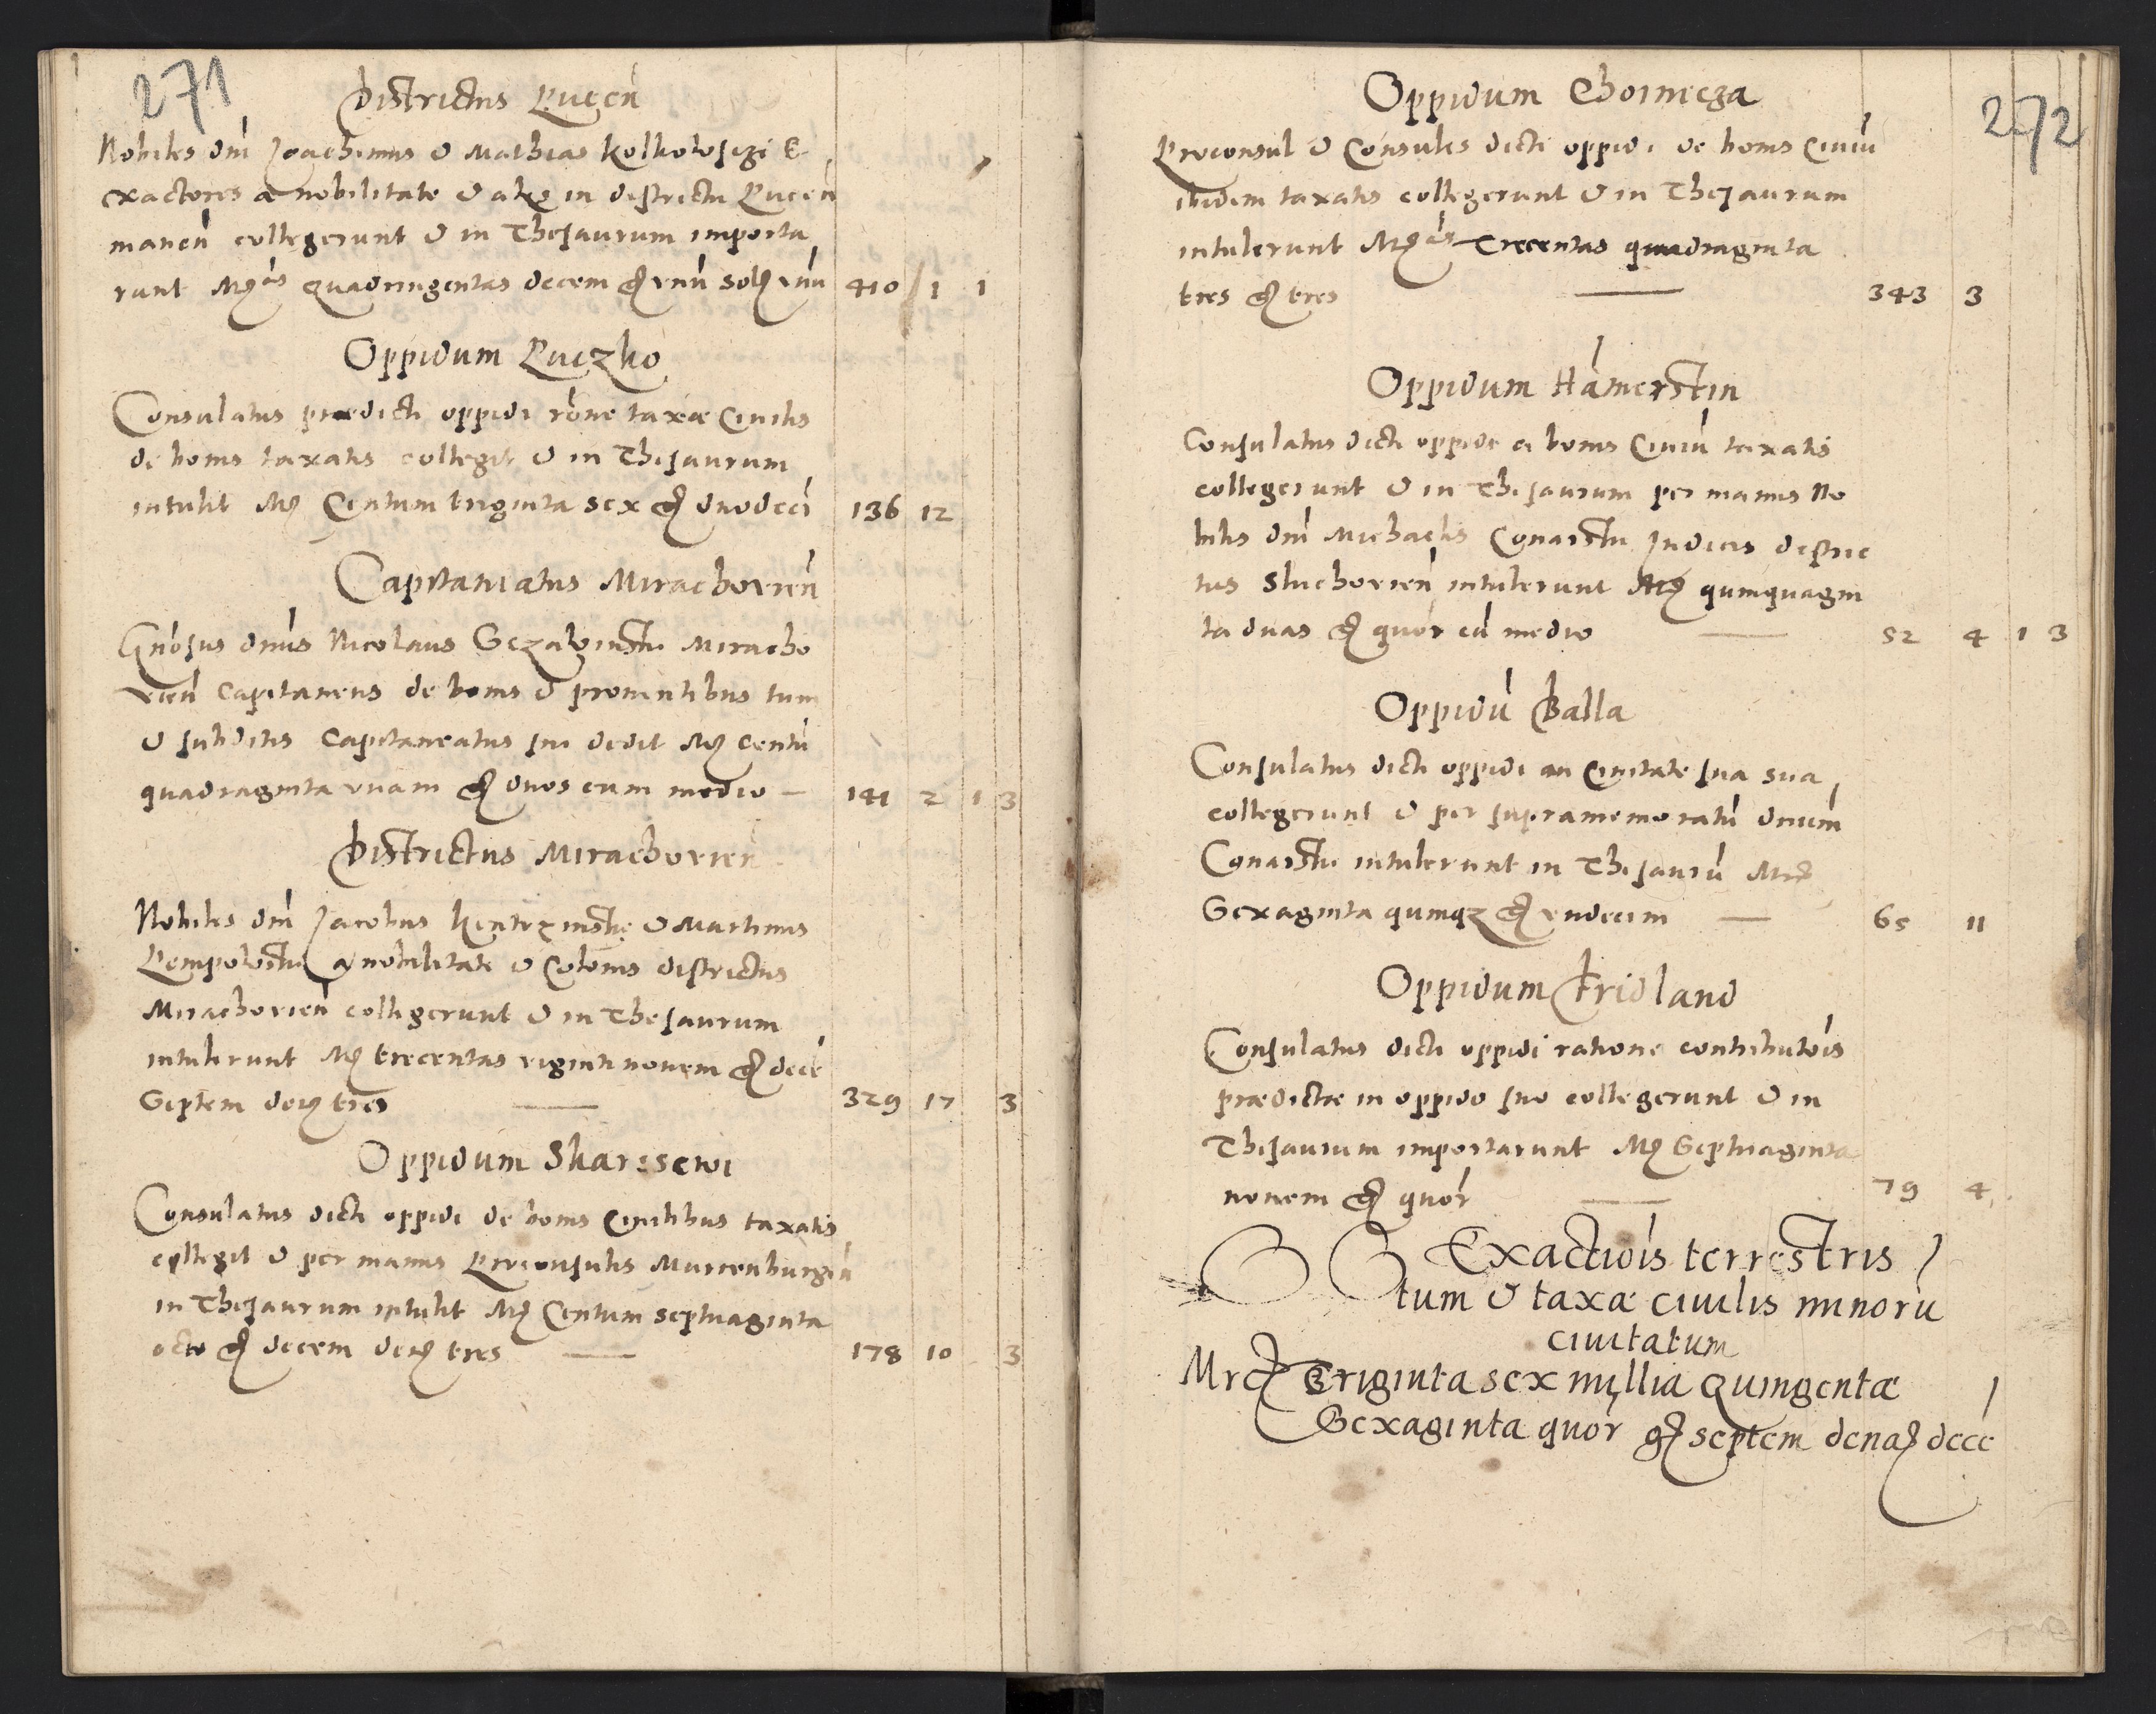 271
Districtus Pucen̄
Nobiles dn̄i Joachimus & Mathias
exactores a nobilitate & in districtu Pucen̄
manen̄ collegerunt & in Thesaurum importa
runt Mr̄as quadringentas decem gr̄ vnū sol vnū 410 1 1
Oppidum Puczko
Consulatus praedicti oppidi rōne taxae Ciuilis
de bonis taxatis collegit & in Thesaurum
intulit Mr̄ Centum triginta sex gr̄ duodeci 136 12
Capitaniatus Mirachovien̄
Gn̄osus dn̄us Nicolaus Miracho
vien̄ Capitaneus de bonis & prouentibus tum
& subditis Capitaneatus sui dedit Mr̄ Centū
quadraginta vnam gr̄ duos cum medio 141 2 1 3
Districtus Mirachovien̄
Nobiles dn̄i Jacobus & Martinus
a nobilitate & Colonis districtus
Mirachovien̄ collegerunt & in Thesaurum
intulerunt Mr̄ trecentas viginti nouem gr̄ decē
Septem den̄ tres 329 17 3
Oppidum Skarsewi
Consulatus dicti oppidi de bonis Ciuilibus taxatis
collegit & per manus Proconsulis Marienburgen̄
in Thesaurum intulit Mr̄ Centum septuaginta
octo gr̄ decem den̄ tres 178 10 3
272
Oppidum Choinicza
Proconsul & Consules dicti oppidi de bonis Ciuiū
ibidem taxatis collegerunt & in Thesaurum
intulerunt Mr̄as Trecentas quadraginta
tres gr̄ tres 343 3
Oppidum Hamerstin
Consulatus dicti oppidi a bonis Ciuiū taxatis
collegerunt & in Thesaurum per manus No
bilis dn̄i Michaelis Conarski Judicis distric
tus Sluchovien̄ intulerunt Mr̄ quinquagin
ta duas gr̄ quōr cū medio 52 4 1 3
Oppidū Balla
Consulatus dicti oppidi in Ciuitate sua sua
collegerunt & per supramemoratū dn̄um
Conarski intulerunt in Thesaurū Mr̄
Sexaginta quinqz gr̄ vndecim 65 11
Oppidum Fridland
Consulatus dicti oppidi ratione contributōis
praedictae in oppido suo collegerunt & in
Thesaurum importarunt Mr̄ Septuaginta
nouem gr̄ quōr 79 4
Exactiōis terrestris
tum & taxae ciuilis minorū
ciuitatum
Mrc Triginta sex millia Quingentae
Sexaginta quōr gr̄ septem dena decē